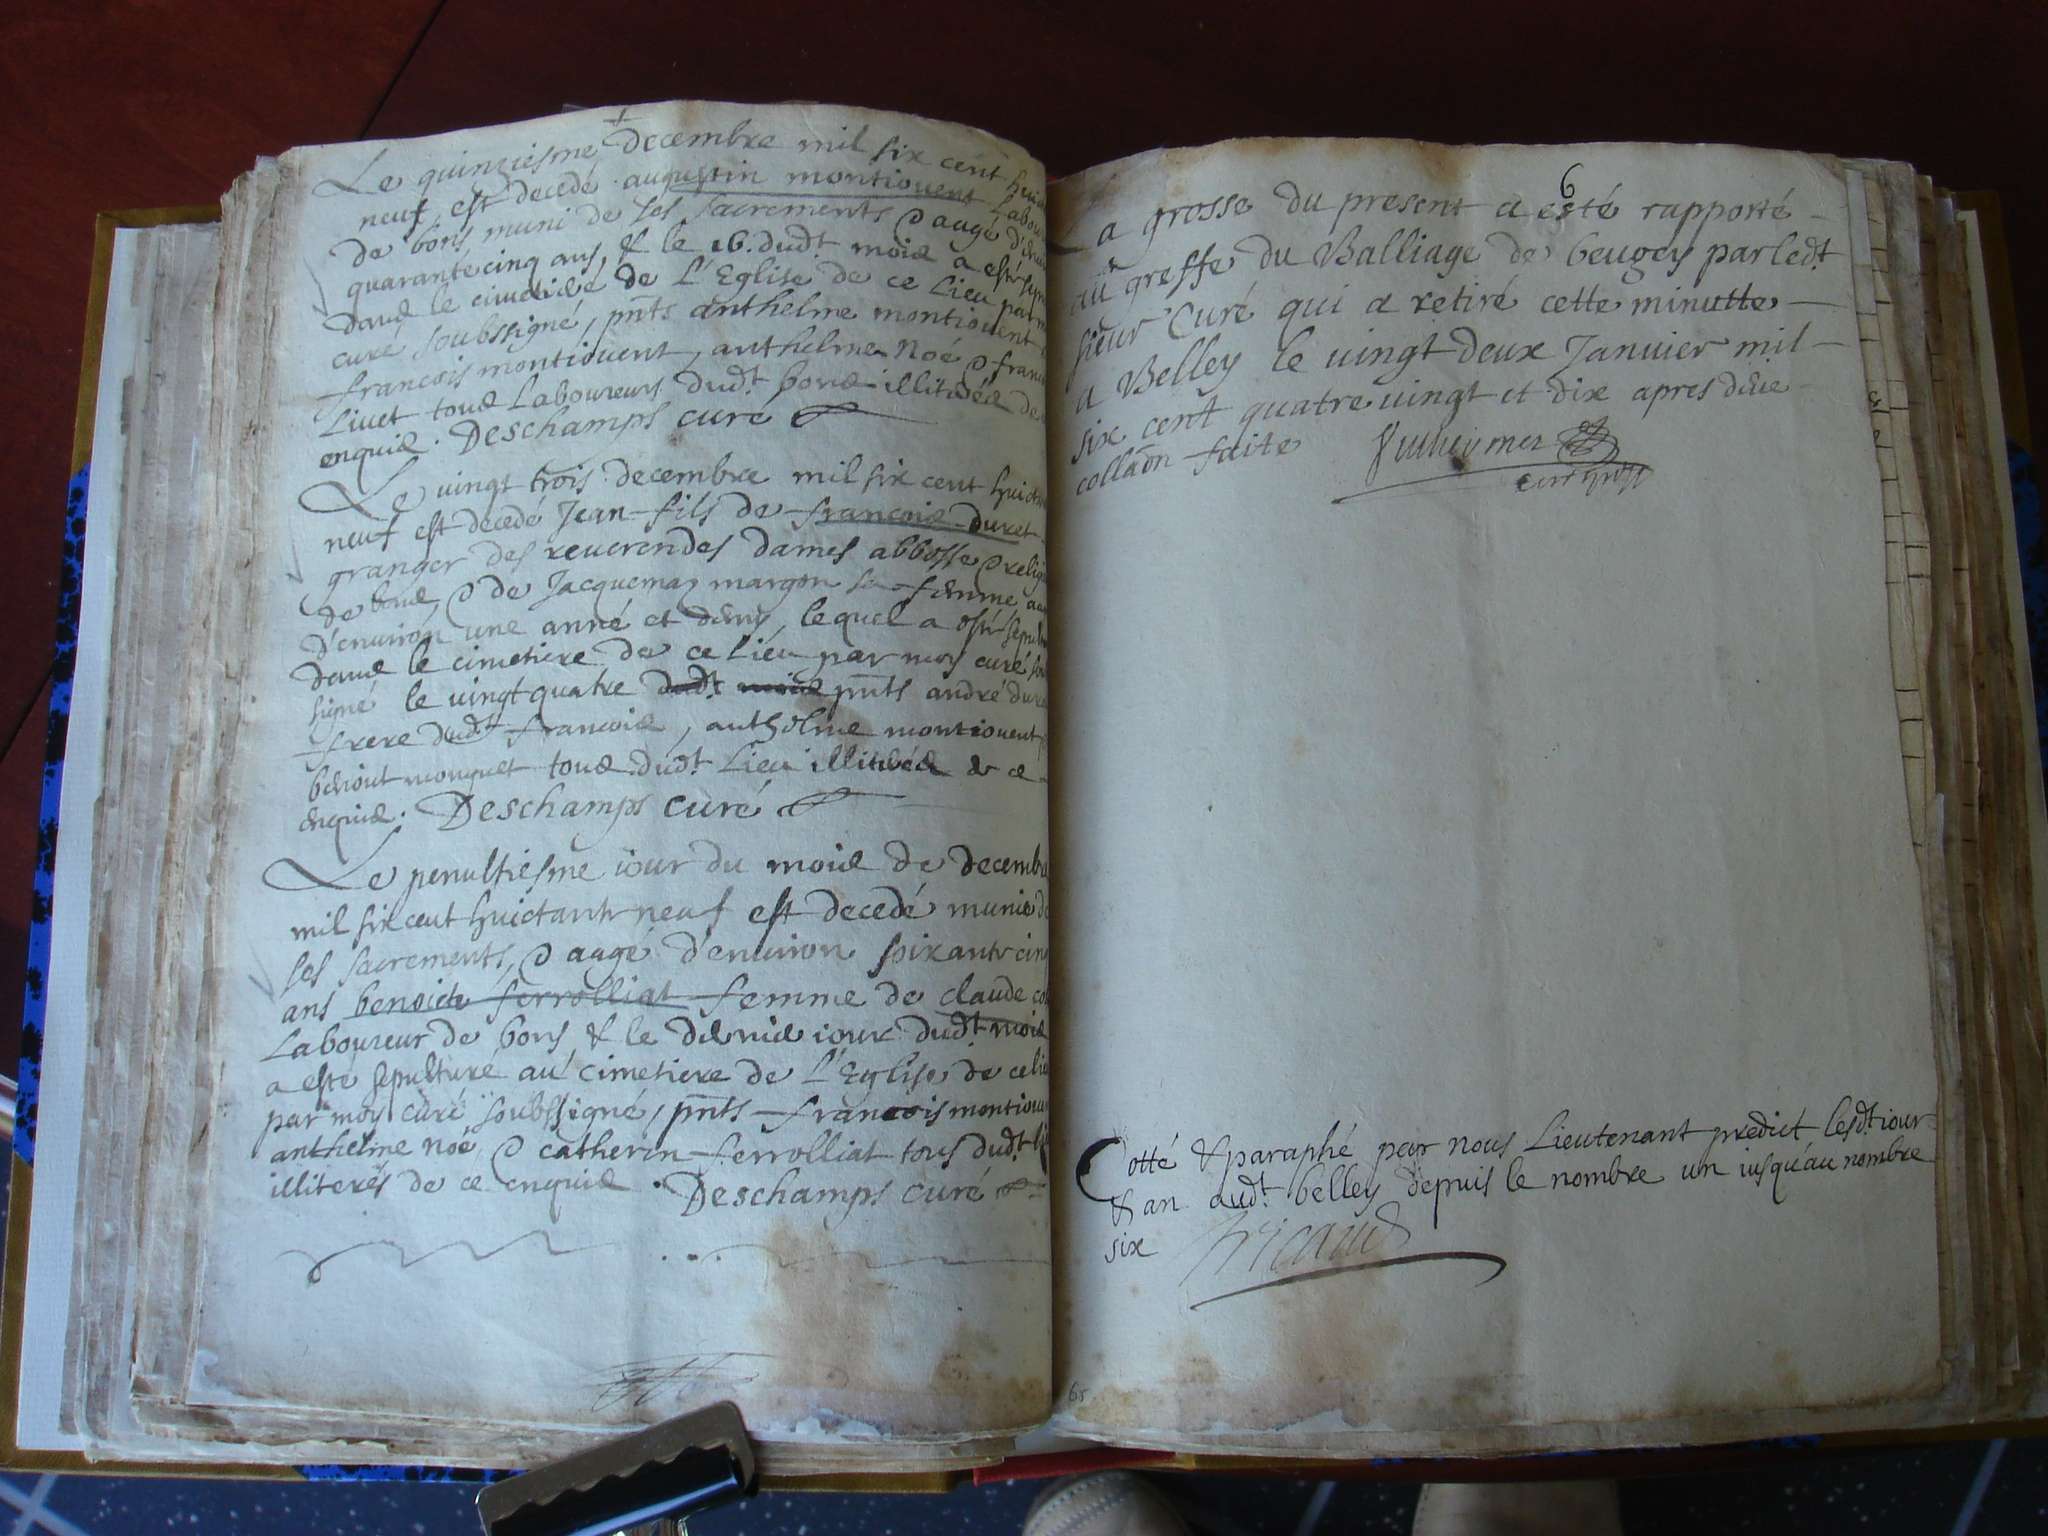 Le quinziesme decembre mil six cent huict
neuf, est decedé augustin montiouent Labou
de bons muni de ses sacrements & aagé d'enui
quarante cinq ans, & le 16. dudt. mois a esté sepu
dans le cimetiere de L'Eglise de ce Lieu par m
curé soubssigné, pnts anthelme montiouent
francois montiouent, anthelme Noé & franc
Liuet tous Laboureurs dudt bons illiterés de
enquis. Deschamps curé
Le uingt trois decembre mil six cent huict
neuf est decedé Jean fils de francois duret
granger des reuerendes dames abbesse & relig
de bons, & de Jacquemaz margon sa femme aa
d'enuiron une anné et demy, lequel a esté sepul
dans le cimetiere de ce Lieu par moy curé sou
signé le uingt quatre dudt mois pnts andré dur
frere dudt francois, anthelme montiouent
benoit monquet tous dudt. Lieu illiterés de ce
enquis. Deschamps curé
Le penultiesme iour du mois de decembre
mil six cent huictante neuf est decedé munie de
ses sacrements, & aagé d'enuiron soixante cinq
ans benoicte ferrolliat femme de claude co
Laboureur de bons & le dernie iour dudt mois
a esté sepulturé au cimetiere de L'Eglise de ce lie
par moy curé soubssigné, pnts francois montioue
anthelme noé, & catherin ferrolliat tous dudt
illiterés de ce enquis. Deschamps curé
6
La grosse du present a esté rapporté
au greffe du Balliage de beugey par ledt
sieur Curé qui a retiré cette minutte
a Belley le uingt deux Januier mil
six cent quatre uingt et dix apres diue
collaōn faite
Cotté & paraphé par nous Lieutenant predict lesdt iour
& an audt. belley depuis le nombre un iusqu'au nombre
six
65